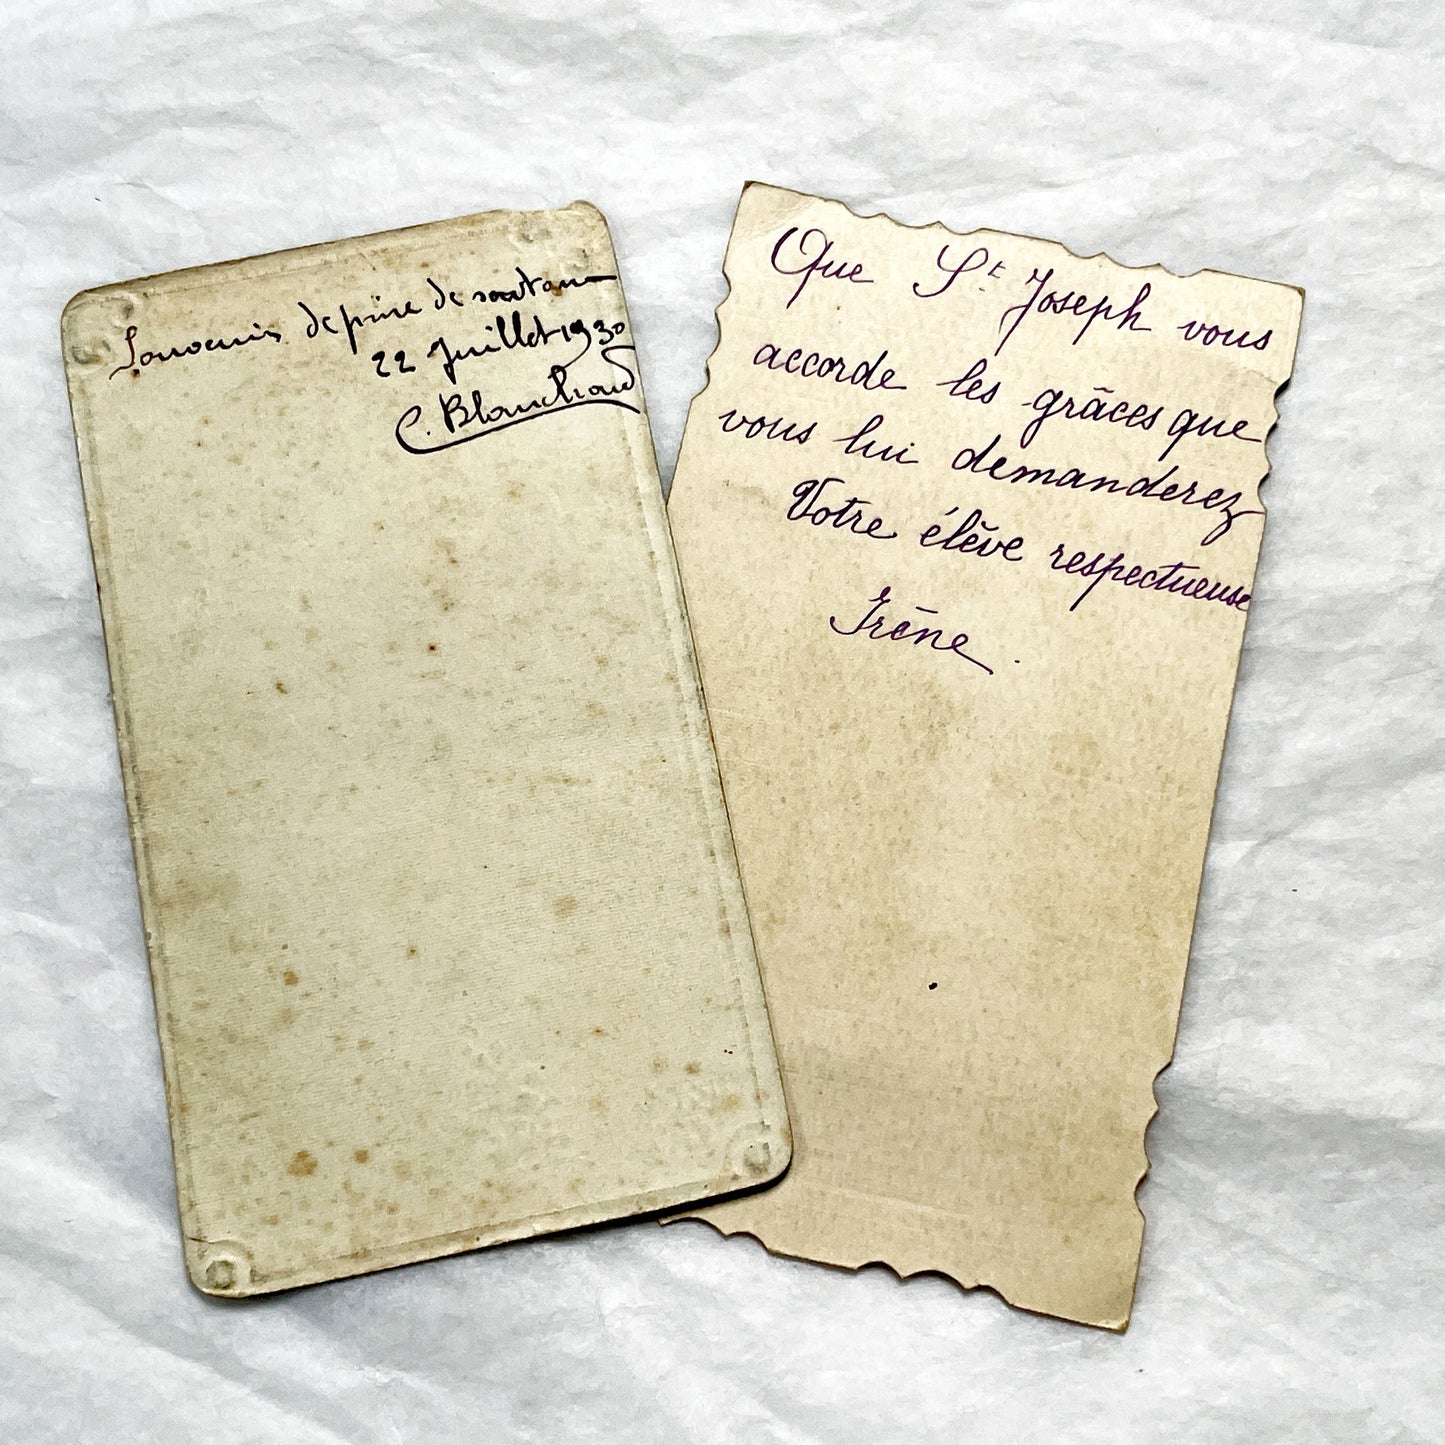 Souvenir de prise de soutane
22 Juillet 1930
C. Blanchaud
Que St Joseph vous
accorde les grâces que
vous lui demanderez
Votre élève respectueuse
Irène.